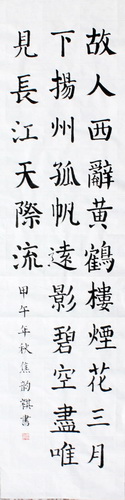 故人西辭黃鶴樓煙花三月
下揚州孤帆遠影碧空盡唯
見長江天際流
甲午年秋焦韵書